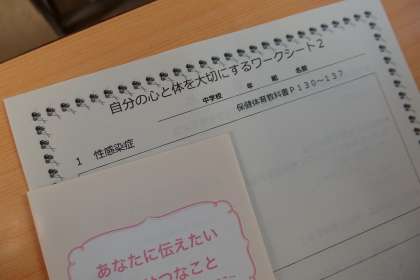 自分の心と体を大切にするワークシート2
中学校 年 組 名前
保健体育教科書P130～137
1 性感染症
あなたに伝えたい
なこと